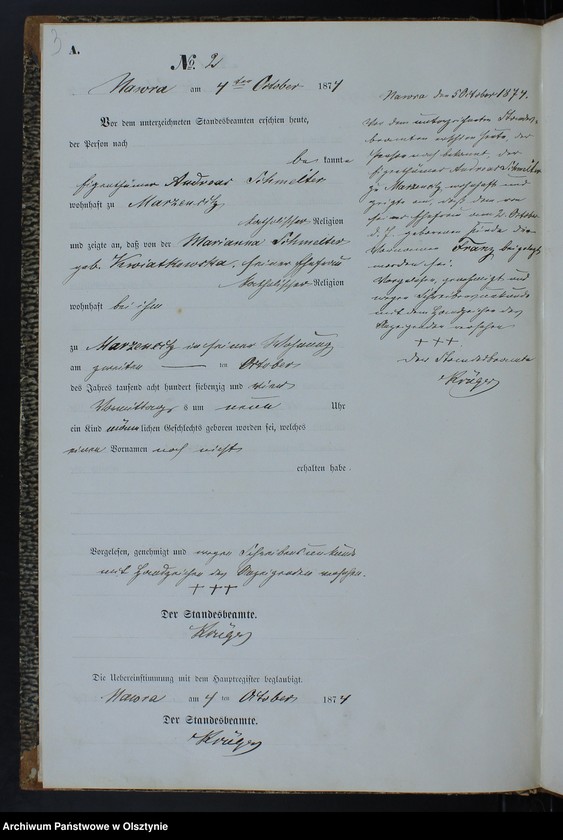 3
A.
No. 2
Nawra am 4ten October 1874
Vor dem unterzeichneten Standesbeamten erschien heute,
der Person nach
bekannt
Eigenthümer Andreas Schmelter
wohnhaft zu
katholischer Religion
und zeigte an, daß von der Marianna Schmelter
geb. Kwiatkowska, seiner Ehefrau
katholischer Religion
wohnhaft bei ihm
zu in seiner Wohnung
am zweiten ten October
des Jahres tausend acht hundert siebenzig und vier
Vormittags um neun Uhr
ein Kind männlichen Geschlechts geboren worden sei, welches
einen Vornamen noch nicht
erhalten habe.
Vorgelesen, genehmigt und wegen Schreibensunkunde
mit Handzeichen des Anzeigenden versehen.
+ + +
Der Standesbeamte.
Krüger
Die Uebereinstimmung mit dem Hauptregister beglaubigt.
Nawra am 4 ten October 1874
Der Standesbeamte.
Krüger
Nawra den 5 October 1874.
Vor dem unterzeichneten Standes-
beamten erschien heute, der
Person nach bekannt, der
Eigenthümer Andreas Schmelter
zu wohnhaft und
zeigte an, daß dem von
seiner Ehefrau am 2. October
d. J. geborenen Kinde der
Vorname Franz beigelegt
worden sei.
Vorgelesen, genehmigt und
wegen Schreibensunkunde
mit dem Handzeichen des
Anzeigenden versehen
+ + +
Der Standesbeamte
Krüger
Archiwum Państwowe w Olsztynie